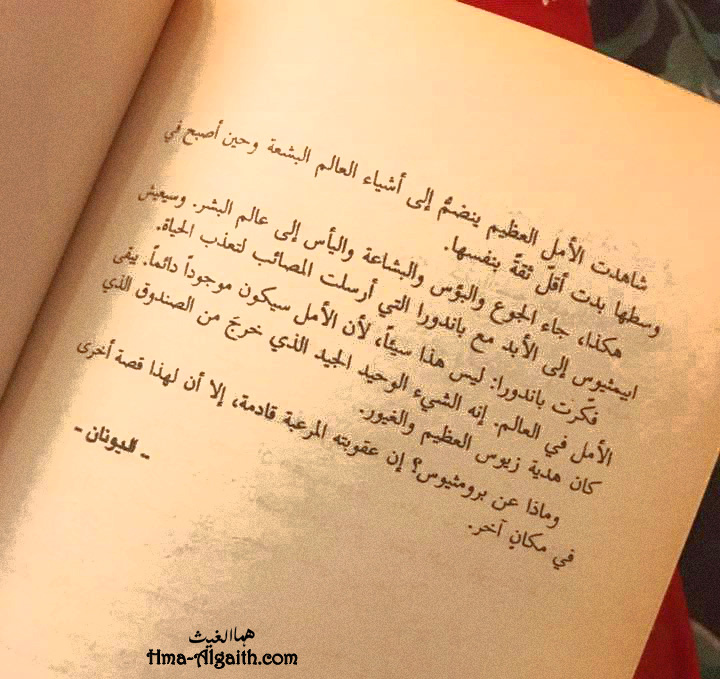 شاهدت الأمل العظيم ينضمُّ إلى أشياء العالم البشعة وحين أصبح في
وسطها بدت أقلّ ثقةً بنفسها.
هكذا، جاء الجوع والبؤس والبشاعة واليأس إلى عالم البشر. وسيعيش
ايمثيوس إلى الأبد مع باندورا التي أرسلت المصائب لتعذب الحياة.
فكّرت باندورا: ليس هذا سيئاً، لأن الأمل سيكون موجوداً دائماً. يبقى
الأمل في العالم. إنه الشيء الوحيد الجيد الذي خرجَ من الصندوق الذي
كان هدية زيوس العظيم والغيور.
وماذا عن برومثيوس؟ إن عقوبته المرعبة قادمة، إلا أن لهذا قصة أخرى
في مكانٍ آخر.
- اليونان -
هما الغيث
Hma-Algaith.com